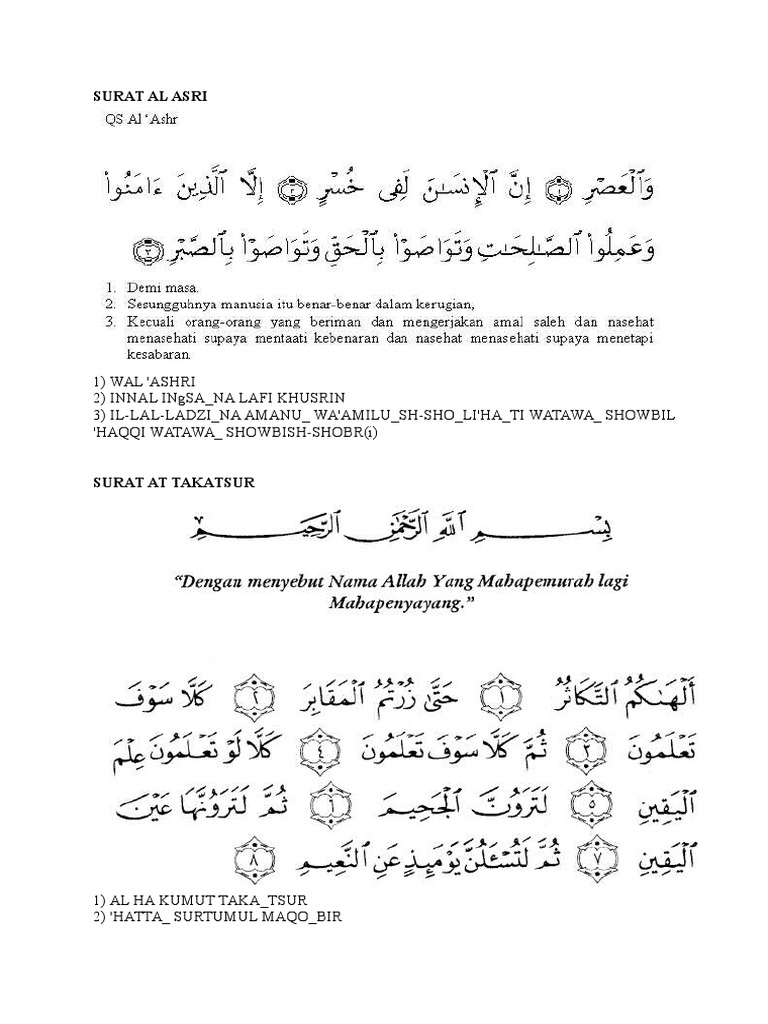 SURAT AL ASRI
QS Al ‘Ashr
وَٱلْعَصْرِ ١ إِنَّ ٱلْإِنسَـٰنَ لَفِى خُسْرٍ ٢ إِلَّا ٱلَّذِينَ ءَامَنُوا۟
وَعَمِلُوا۟ ٱلصَّـٰلِحَـٰتِ وَتَوَاصَوْا۟ بِٱلْحَقِّ وَتَوَاصَوْا۟ بِٱلصَّبْرِ ٣
1. Demi masa.
2. Sesungguhnya manusia itu benar-benar dalam kerugian,
3. Kecuali orang-orang yang beriman dan mengerjakan amal saleh dan nasehat
menasehati supaya mentaati kebenaran dan nasehat menasehati supaya menetapi
kesabaran.
1) WAL 'ASHRI
2) INNAL INgSA_NA LAFI KHUSRIN
3) IL-LAL-LADZI_NA AMANU_ WA'AMILU_SH-SHO_LI'HA_TI WATAWA_ SHOWBIL
'HAQQI WATAWA_ SHOWBISH-SHOBR(i)
SURAT AT TAKATSUR
بِسْمِ ٱللَّهِ ٱلرَّحْمَـٰنِ ٱلرَّحِيمِ
“Dengan menyebut Nama Allah Yang Mahapemurah lagi
Mahapenyayang.”
أَلْهَىٰكُمُ ٱلتَّكَاثُرُ ١ حَتَّىٰ زُرْتُمُ ٱلْمَقَابِرَ ٢ كَلَّا سَوْفَ
تَعْلَمُونَ ٣ ثُمَّ كَلَّا سَوْفَ تَعْلَمُونَ ٤ كَلَّا لَوْ تَعْلَمُونَ عِلْمَ
ٱلْيَقِينِ ٥ لَتَرَوُنَّ ٱلْجَحِيمَ ٦ ثُمَّ لَتَرَوُنَّهَا عَيْنَ
ٱلْيَقِينِ ٧ ثُمَّ لَتُسْـَٔلُنَّ يَوْمَئِذٍ عَنِ ٱلنَّعِيمِ ٨
1) AL HA KUMUT TAKA_TSUR
2) 'HATTA_ SURTUMUL MAQO_BIR